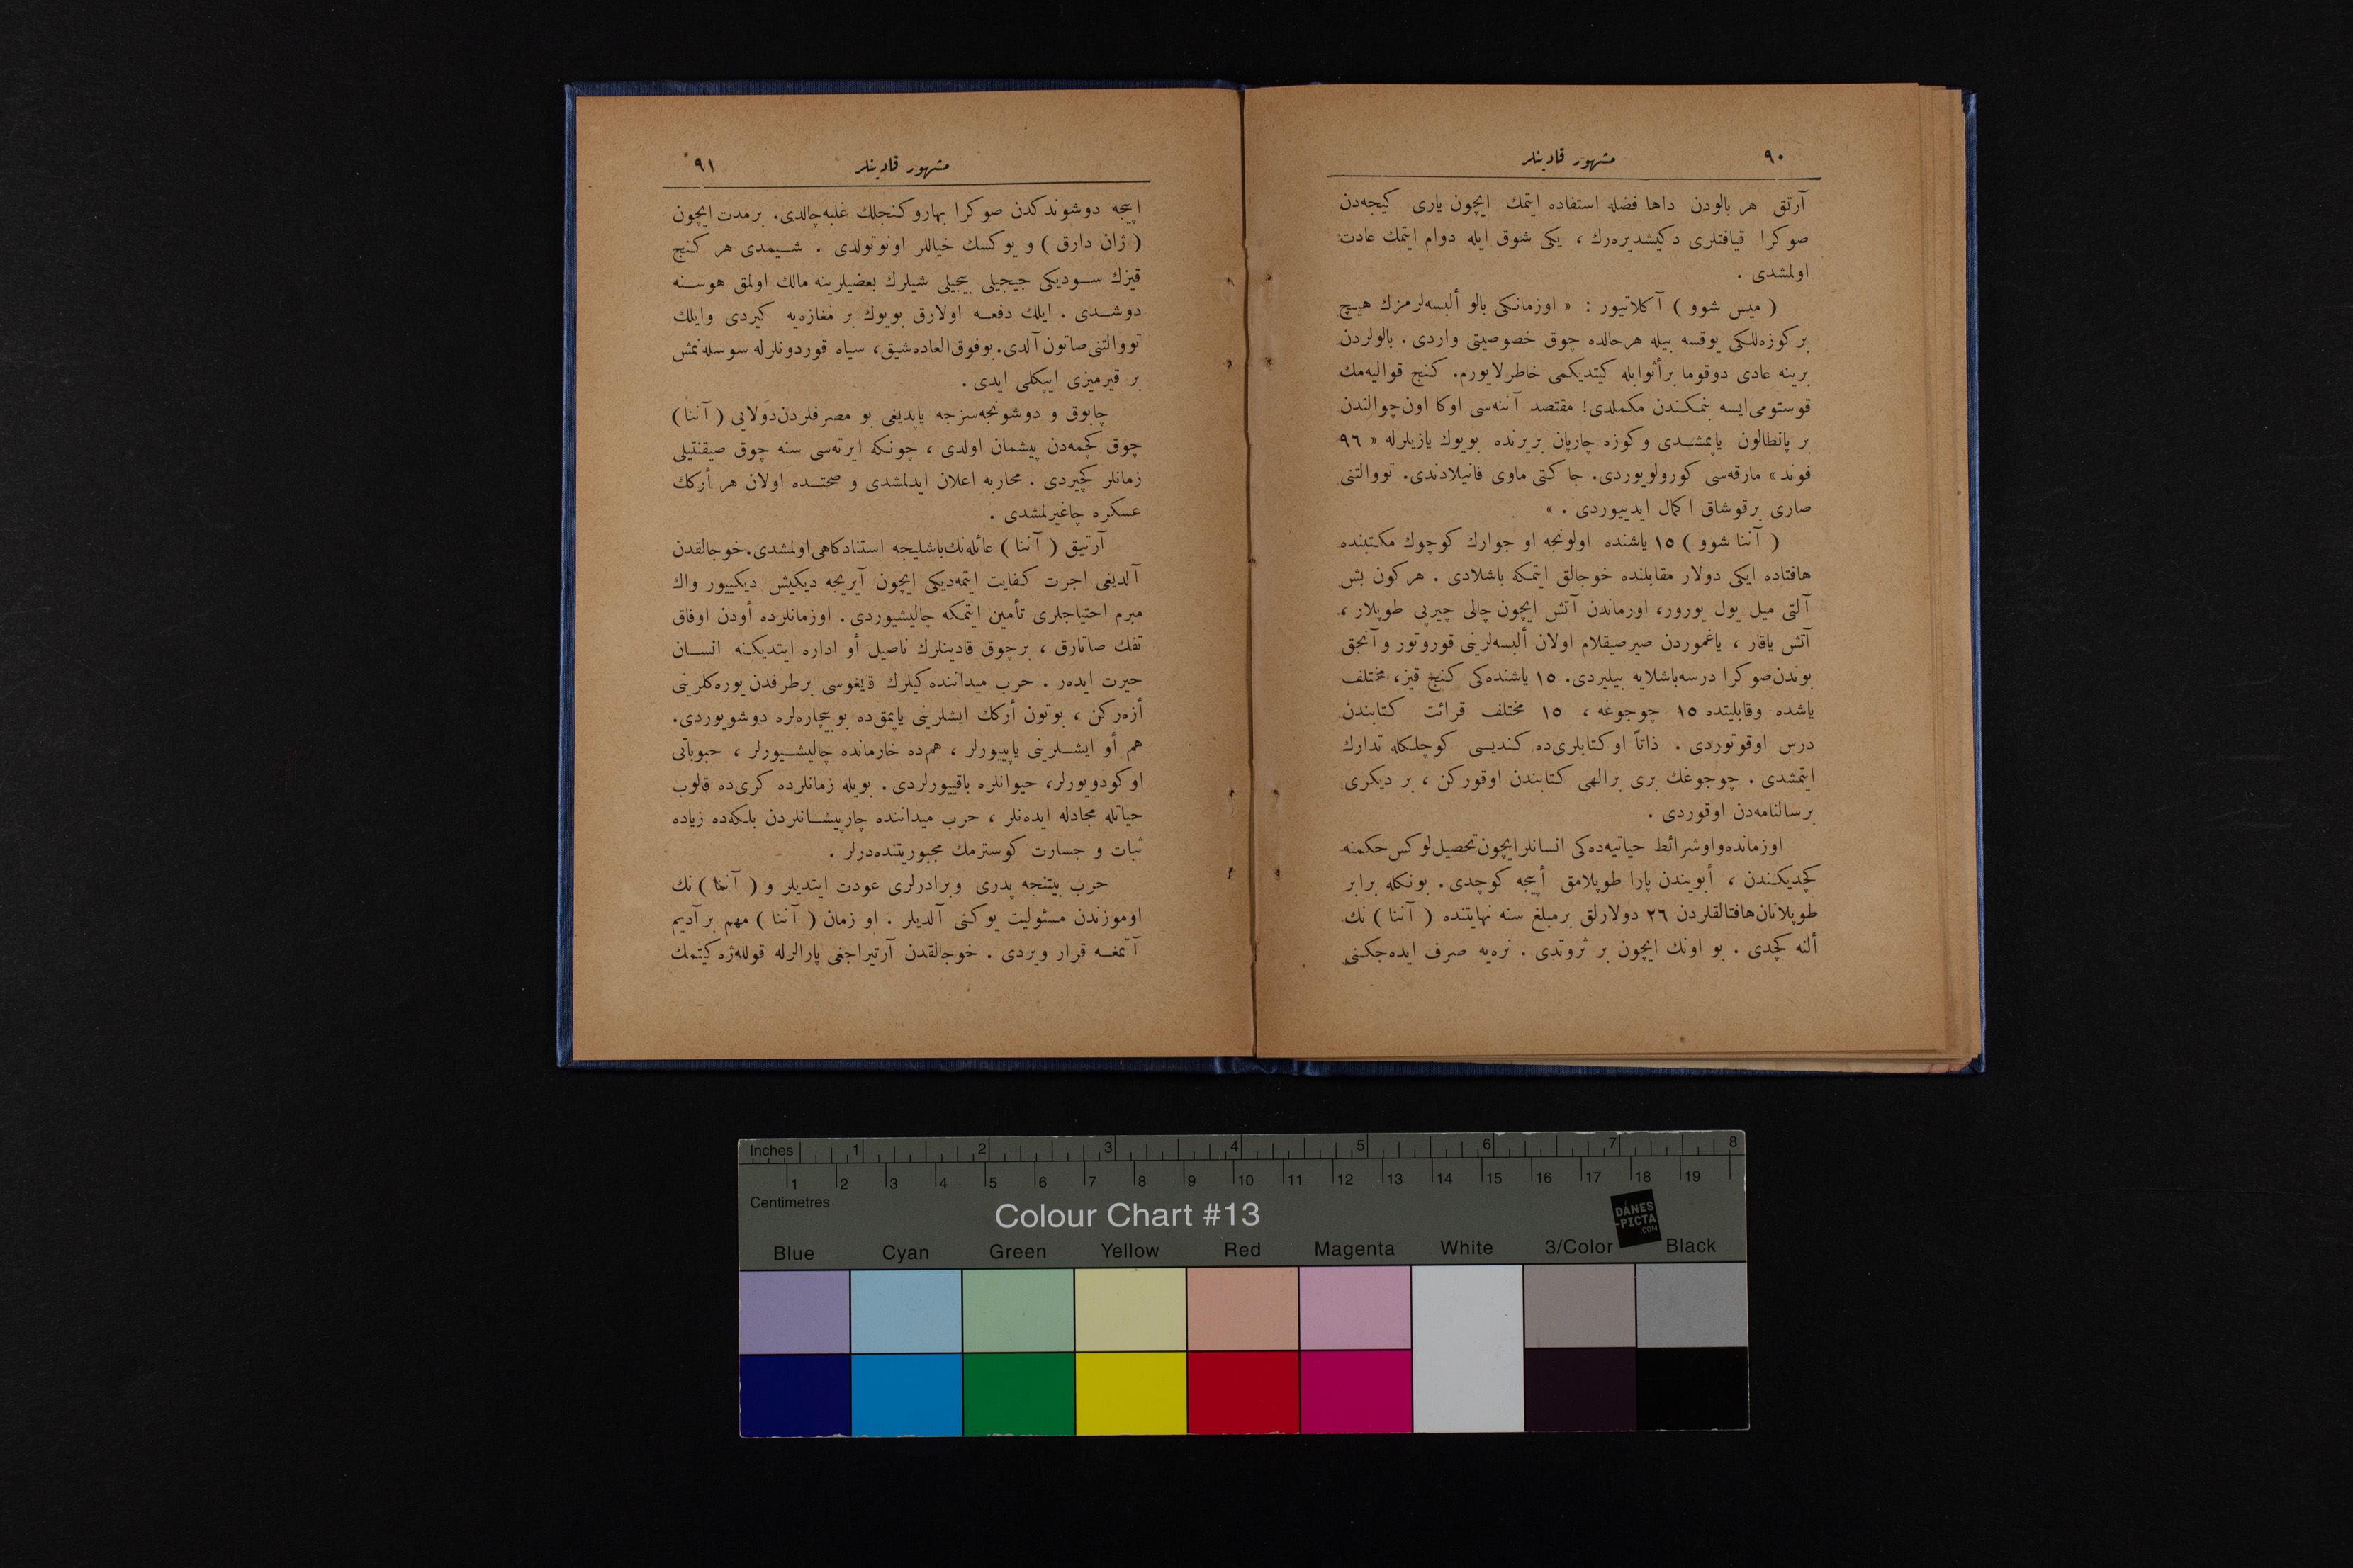 ٩٠
مشهور قادينلر
آرتق هر بالودن داها فضله استفاده ايتمك ايچون يارى كيجه‌دن
صوكرا قيافتلرى دكيشديره‌رك ، يكى شوق ايله دوام ايتمك عادت
اولمشدى .
( ميس شوو ) آكلاتيور : « اوزمانكى بالو ألبسه‌لرمزك هيچ
بر كوزه‌للكى يوقسه بيله هرحالده چوق خصوصيتى واردى . بالولردن
برينه عادى دوقوما برأثوابله كيتديكمى خاطرلايورم. كنج قواليه‌مك
قوستومى‌ايسه بنمكندن مكملدى! مقتصد آننه‌سى اوكا اون‌چوالندن
بر پانطالون ياپمشدى وكوزه چارپان بريرنده بويوك يازيلرله « ٩٦
فوند » مارقه‌سى كورولويوردى. جاكتى ماوى فانيلادندى. تووالتنى
صارى برقوشاق اكمال ايدييوردى . »
( آننا شوو ) ١٥ ياشنده اولونجه او جوارك كوچوك مكتبنده
هافتاده ايكى دولار مقابلنده خوجالق ايتمكه باشلادى . هركون بش
آلتى ميل يول يورور، اورماندن آتش ايچون چالى چيرپى طوپلار ،
آتش ياقار ، ياغموردن صيرصيقلام اولان ألبسه‌لرينى قوروتور وآنجق
بوندن‌صوكرا درسه‌باشلايه بيليردى. ١٥ ياشنده‌كى كنج قيز، مختلف
ياشده وقابليتده ١٥ چوجوغه ، ١٥ مختلف قرائت كتابندن
درس اوقوتوردى . ذاتاً اوكتابلرى‌ده كنديسى كوچلكله تدارك
ايتمشدى . چوجوغك برى برالهى كتابندن اوقوركن ، بر ديكرى
برسالنامه‌دن اوقوردى .
اوزمانده‌واوشرائط حياتيه‌ده‌كى انسانلرايچون‌تحصيل‌لوكس‌حكمنه
كچديكندن ، أبويندن پارا طوپلامق أپيجه كوچدى . بونكله برابر
طوپلانان‌هافتالقلردن ٢٦ دولارلق برمبلغ سنه نهايتنده ( آننا ) نك
ألنه كچدى . بو اونك ايچون بر ثروتدى . نره‌يه صرف ايده‌جكنى
مشهور قادينلر
٩١
اپيجه دوشوندكدن صوكرا بهاروكنجلك غلبه‌چالدى. برمدت ايچون
( ژان دارق ) و يوكسك خياللر اونوتولدى . شيمدى هر كنج
قيزك سوديكى جيجيلى بيجيلى شيلرك بعضيلرينه مالك اولمق هوسنه
دوشدى . ايلك دفعه اولارق بويوك بر مغازه‌يه كيردى وايلك
تووالتنى صاتون آلدى. بوفوق‌العاده‌شيق، سياه قوردونلرله سوسله‌نمش
بر قيرميزى ايپكلى ايدى .
چابوق و دوشونجه‌سزجه ياپديغى بو مصرفلردن‌دولايى ( آننا )
چوق كچمه‌دن پيشمان اولدى ، چونكه ايرته‌سى سنه چوق صيقنتيلى
زمانلر كچيردى . محاربه اعلان ايدلمشدى و صحتده اولان هر أركك
عسكره چاغيرلمشدى .
آرتيق ( آننا ) عائله‌نك‌باشليجه استنادكاهى‌اولمشدى. خوجالقدن
آلديغى اجرت كفايت ايتمه‌ديكى ايچون آيريجه ديكيش ديكييور واك
مبرم احتياجلرى تأمين ايتمكه چاليشيوردى . اوزمانلرده أودن اوفاق
تفك صاتارق ، برچوق قادينلرك ناصيل أو اداره ايتديكنه انسان
حيرت ايده‌ر . حرب ميداننده‌كيلرك قيغوسى برطرفدن يوره‌كلرينى
أزه‌ركن ، بوتون أركك ايشلرينى ياپمق‌ده بوبيچاره‌لره دوشويوردى.
هم أو ايشلرينى ياپييورلر ، هم‌ده خارمانده چاليشيورلر ، حبوباتى
اوكودويورلر، حيوانلره باقييورلردى . بويله زمانلرده كرى‌ده قالوب
حياتله مجادله ايده‌نلر ، حرب ميداننده چارپيشانلردن بلكه‌ده زياده
ثبات و جسارت كوسترمك مجبوريتنده‌درلر .
حرب بيتنجه پدرى وبرادرلرى عودت ايتديلر و ( آننا ) نك
اوموزندن مسئوليت يوكنى آلديلر . او زمان ( آننا ) مهم برآديم
آتمغه قرار ويردى . خوجالقدن آرتيراجغى پارالرله قوللەژه كيتمك
Inches
1 2 3 4 5 6 7 8
1 2 3 4 5 6 7 8 9 10 11 12 13 14 15 16 17 18 19
Centimetres
Colour Chart #13
DANES
-PICTA
.COM
Blue Cyan Green Yellow Red Magenta White 3/Color Black